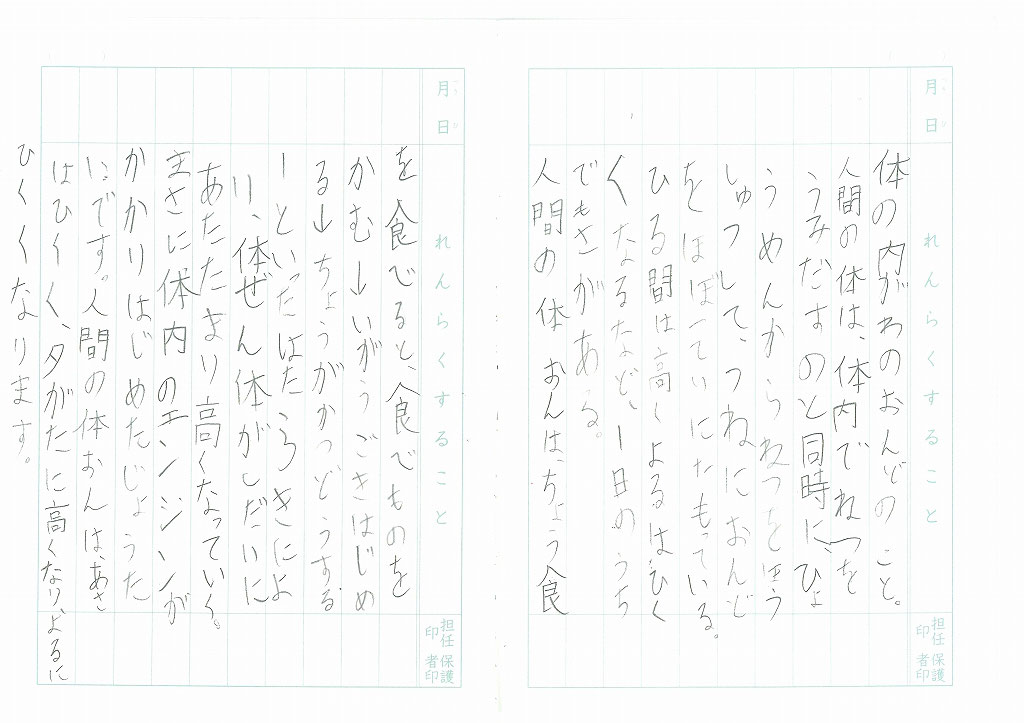 月日
れんらくすること
担任印
保護者印
体の内がわのおんどのこと。
人間の体は、体内でねつを
うみだすのと同時に、ひょ
うめんからねつをほう
しゅつして、つねにおんど
をほぼていにたもっている。
ひる間は高くよるはひく
くなるなど、1日のうち
でもさがある。
人間の体おんは、ちょう食
月日
れんらくすること
担任印
保護者印
を食べると、食べものを
かむ→いがうごきはじめ
る→ちょうがかつどうする
ーといったはたらきによ
り、体ぜん体がしだいに
あたたまり高くなっていく。
まさに体内のエンジンが
かかりはじめたじょうた
いです。人間の体おんは、あさ
はひくく、夕がたに高くなり、よるに
ひくくなります。